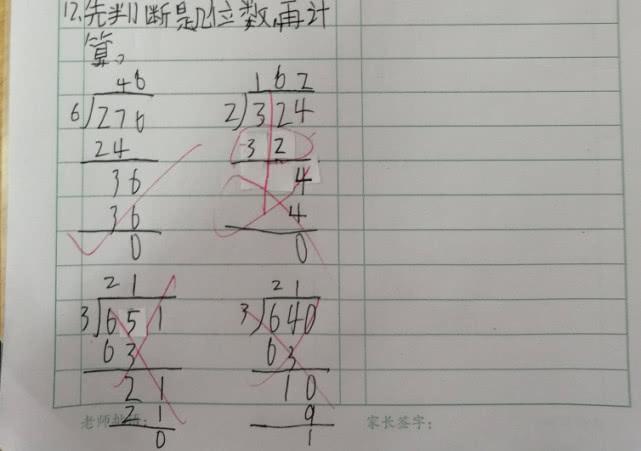 12.先判断是几位数,再计
算。
46
6)276
24
36
36
0
162
2)324
32
4
4
0
21
3)651
63
21
21
0
21
3)640
63
10
9
1
家长签字: